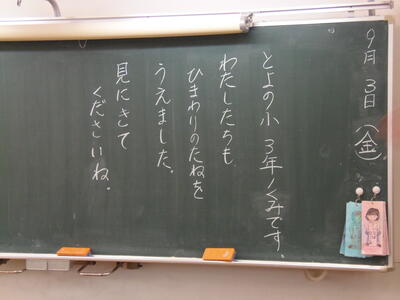 9月3日(金)
とよの小3年1くみです。
わたしたちも
ひまわりのたねを
うえました。
見にきて
くださいね。